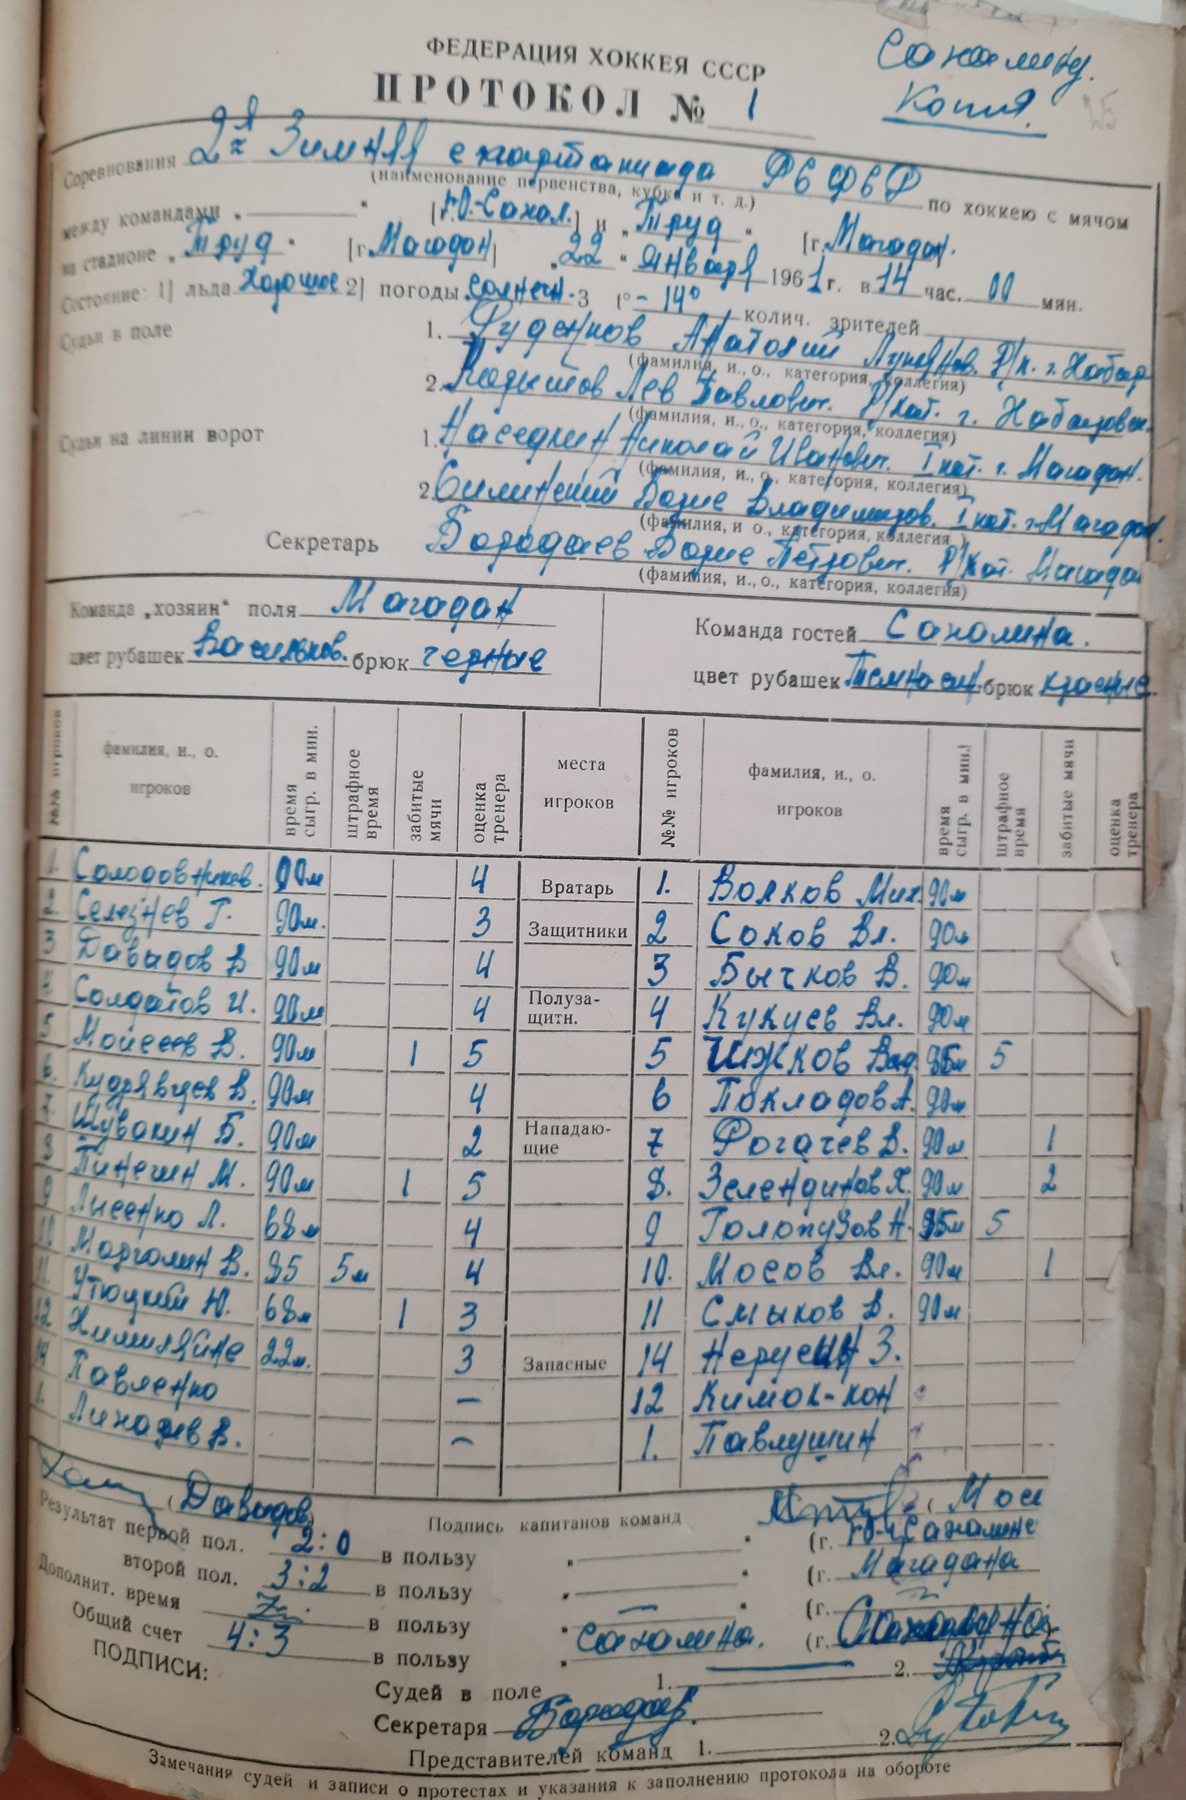 ФЕДЕРАЦИЯ ХОККЕЯ СССР
Сахалину.
ПРОТОКОЛ № 1
Копия.
Соревнования 2я Зимняя спартакиада
(наименование первенства, кубка и т. д.)
по хоккею с мячом
между командами „ “ [г.Ю.-Сахал.] и „Труд“ [г. Магадан.
на стадионе „Труд“ [г. Магадан] „22“ января 1961 г. в 14 час. 00 мин.
Состояние: 1] льда хорошее 2] погоды солнечн. 3 t° - 14° колич. зрителей
Судьи в поле 1. Анатолий
(фамилия, и., о., категория, коллегия)
2. Лев Павлович. г. Хабаровск.
(фамилия, и., о., категория, коллегия)
Судьи на линии ворот 1. Наседкин Николай Иванович. I кат. г. Магадан.
(фамилия, и., о., категория, коллегия)
2. Борис Владимиров. I кат. г. Магадан.
(фамилия, и о., категория, коллегия)
Секретарь Бородаев Борис Петрович. Магадан
(фамилия, и., о., категория, коллегия)
Команда „хозяин“ поля Магадан
Команда гостей Сахалина.
цвет рубашек Васильков. брюк черные
цвет рубашек Темно син. брюк красные
№№ игроков фамилия, и., о. игроков время сыгр. в мин. штрафное время забитые мячи оценка тренера места игроков №№ игроков фамилия, и., о. игроков время сыгр. в мин.] штрафное время забитые мячи оценка тренера
1. Солодовников. 90м 4 Вратарь 1. Волков Мих. 90м
2. Селезнев Г. 90м. 3 Защитники 2 Соков Вл. 90м
3 Давыдов В 90м 4 3 Бычков В. 90м
4. Солдатов И. 90м 4 Полуза-щитн. 4 Кукуев Вл. 90м
5 Моисеев В. 90м 1 5 5 Чижков Вад. 85м 5
6. Кудрявцев В. 90м 4 6 Покладов А. 90м
7. Шувакин Б. 90м 2 Нападаю-щие 7 Рогачев В. 90м 1
8 Пинегин М. 90м 1 5 8. Зелендинов Х. 90м 2
9 Лысенко Л. 68м 4 9 Голопузов Н. 85м 5
10 Марголин В. 85 5м 4 10. Мосов Вл. 90м 1
11. Утюцкий Ю. 68м 1 3 11 Смыков В. 90м
12 22м. 3 Запасные 14 З.
14 Павленко – 12 Кимок-кон
1. Лихачев В. – 1. Павлушин
(Давыдов) Подпись капитанов команд (Мос
Результат первой пол. 2:0 в пользу „ “ (г. Ю-Сахалинс
второй пол. 3:2 в пользу „ “ (г. Магадана
Дополнит. время в пользу „ — “ (г.
Общий счет 4:3 в пользу „ Сахалина. (г.
ПОДПИСИ: Судей в поле 1. 2.
Секретаря
Представителей команд 1. 2.
Замечания судей и записи о протестах и указания к заполнению протокола на обороте